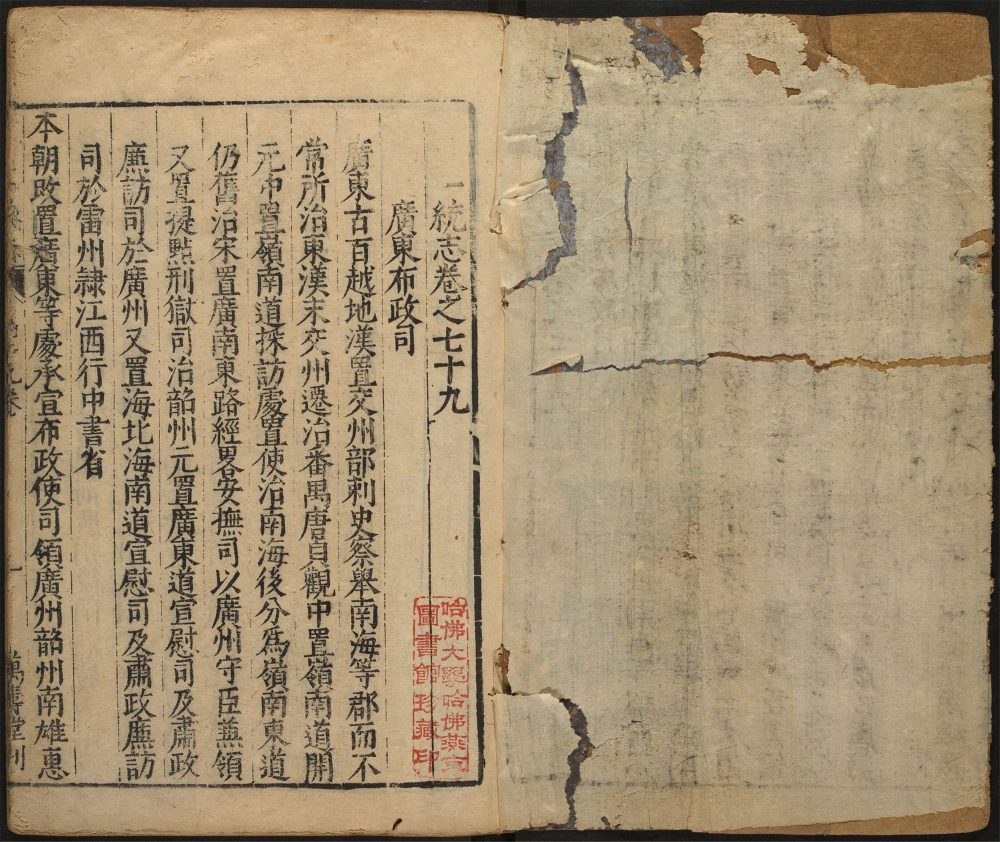 一統志卷之七十九
廣東布政司
廣東古百越地漢置交州部刺史察舉南海等郡而不
常所治東漢末交州遷治番禺唐貞觀中置嶺南道開
元中置嶺南道採訪處置使治南海後分爲嶺南東道
仍舊治宋置廣南東路經畧安撫司以廣州守臣兼領
又置提點刑獄司治韶州元置廣東道宣慰司及肅政
廉訪司於廣州又置海北海南道宣慰司及肅政廉訪
司於雷州隸江西行中書省
本朝改置廣東等處承宣布政使司領廣州韶州南雄惠
九卷
一
萬壽堂刊
哈佛大學哈佛燕京
圖書館珍藏印